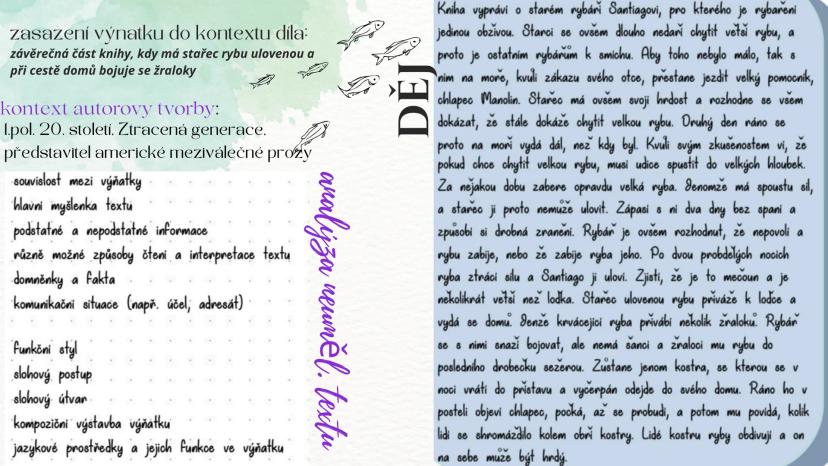 zasazení výnatku do kontextu díla:
závěrečná část knihy, kdy má stařec rybu ulovenou a
při cestě domů bojuje se žraloky
kontext autorovy tvorby:
1.pol. 20. století. Ztracená generace,
představitel americké meziválečné prozy
souvislost mezi výňatky
hlavní myšlenka textu
podstatné a nepodstatné informace
různě možné způsoby čtení a interpretace textu
domněnky a fakta
komunikační situace (např. účel, adresát)
funkční styl
slohový postup
slohový útvar
kompoziční výstavba výňatku
jazykové prostředky a jejich funkce ve výňatku
analýza neuměl. textu
DĚJ
Kniha vypráví o starém rybáři Santiagovi, pro kterého je rybaření
jedinou obživou. Starci se ovšem dlouho nedaří chytit větší rybu, a
proto je ostatním rybářům k smíchu. Aby toho nebylo málo, tak s
ním na moře, kvůli zákazu svého otce, přestane jezdit velký pomocník,
chlapec Manolin. Stařec má ovšem svoji hrdost a rozhodne se všem
dokázat, že stále dokáže chytit velkou rybu. Druhý den ráno se
proto na moři vydá dál, než kdy byl. Kvůli svým zkušenostem ví, že
pokud chce chytit velkou rybu, musí udice spustit do velkých hloubek.
Za nějakou dobu zabere opravdu velká ryba. Jenomže má spoustu sil,
a stařec ji proto nemůže ulovit. Zápasí s ní dva dny bez spaní a
způsobí si drobná zranění. Rybář je ovšem rozhodnut, že nepovolí a
rybu zabije, nebo že zabije ryba jeho. Po dvou probdělých nocích
ryba ztrácí sílu a Santiago ji uloví. Zjistí, že je to mečoun a je
několikrát větší než loďka. Stařec ulovenou rybu přiváže k loďce a
vydá se domů. Jenže krvácející ryba přivábí několik žraloků. Rybář
se s nimi snaží bojovat, ale nemá šanci a žraloci mu rybu do
posledního drobečku sežerou. Zůstane jenom kostra, se kterou se v
noci vrátí do přístavu a vyčerpán odejde do svého domu. Ráno ho v
posteli objeví chlapec, počká, až se probudí, a potom mu povídá, kolik
lidí se shromáždilo kolem obří kostry. Lidé kostru ryby obdivují a on
na sebe může být hrdý.